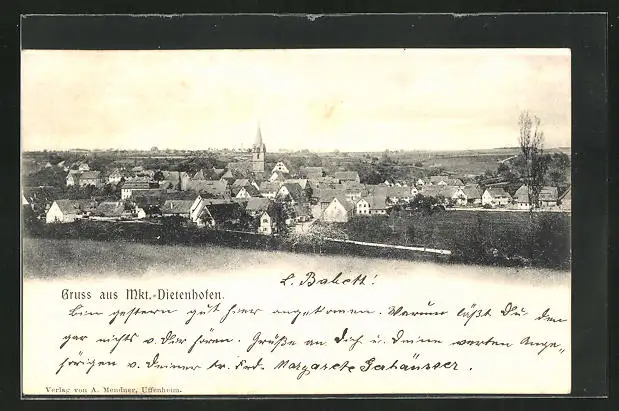 L. Babett!
Gruss aus Mkt.-Dietenhofen.
Bin gestern gut hier angekommen. Warum läßt Du denn
gar nichts v. Dir hören. Grüße an Dich u. Deine werten Ange-
hörigen v. Deiner tr. Frd. Margarete
Verlag von A. Mendner, Uffenheim.